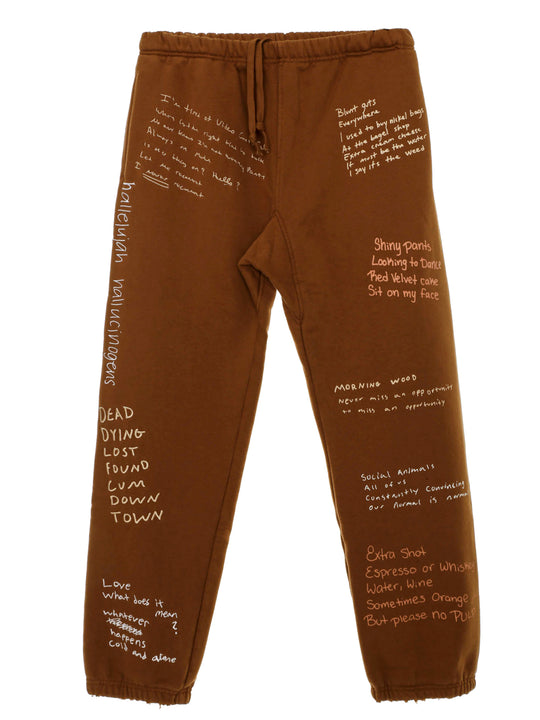 I'm tired of Video Ga
When
Always on mute
is my blog on? Hello?
Let me reinvent
I never reinvent
hallelujah hallucinogens
DEAD
DYING
LOST
FOUND
CUM
DOWN
TOWN
Love
What does it
mean
?
whatever
happens
cold and alone
Blunt guts
Everywhere
I used to buy nickel bags
At the bagel shop
Extra cream cheese
It must be the water
I say it's the weed
Shiny pants
Looking to Dance
Red Velvet cake
Sit on my face
MORNING WOOD
Never miss an opportunity
to miss an opportunity
Social Animals
All of us
Constantly Convincing
Our normal is normal
Extra Shot
Espresso or Whiskey
Water, Wine
Sometimes Orange
But please no PULP